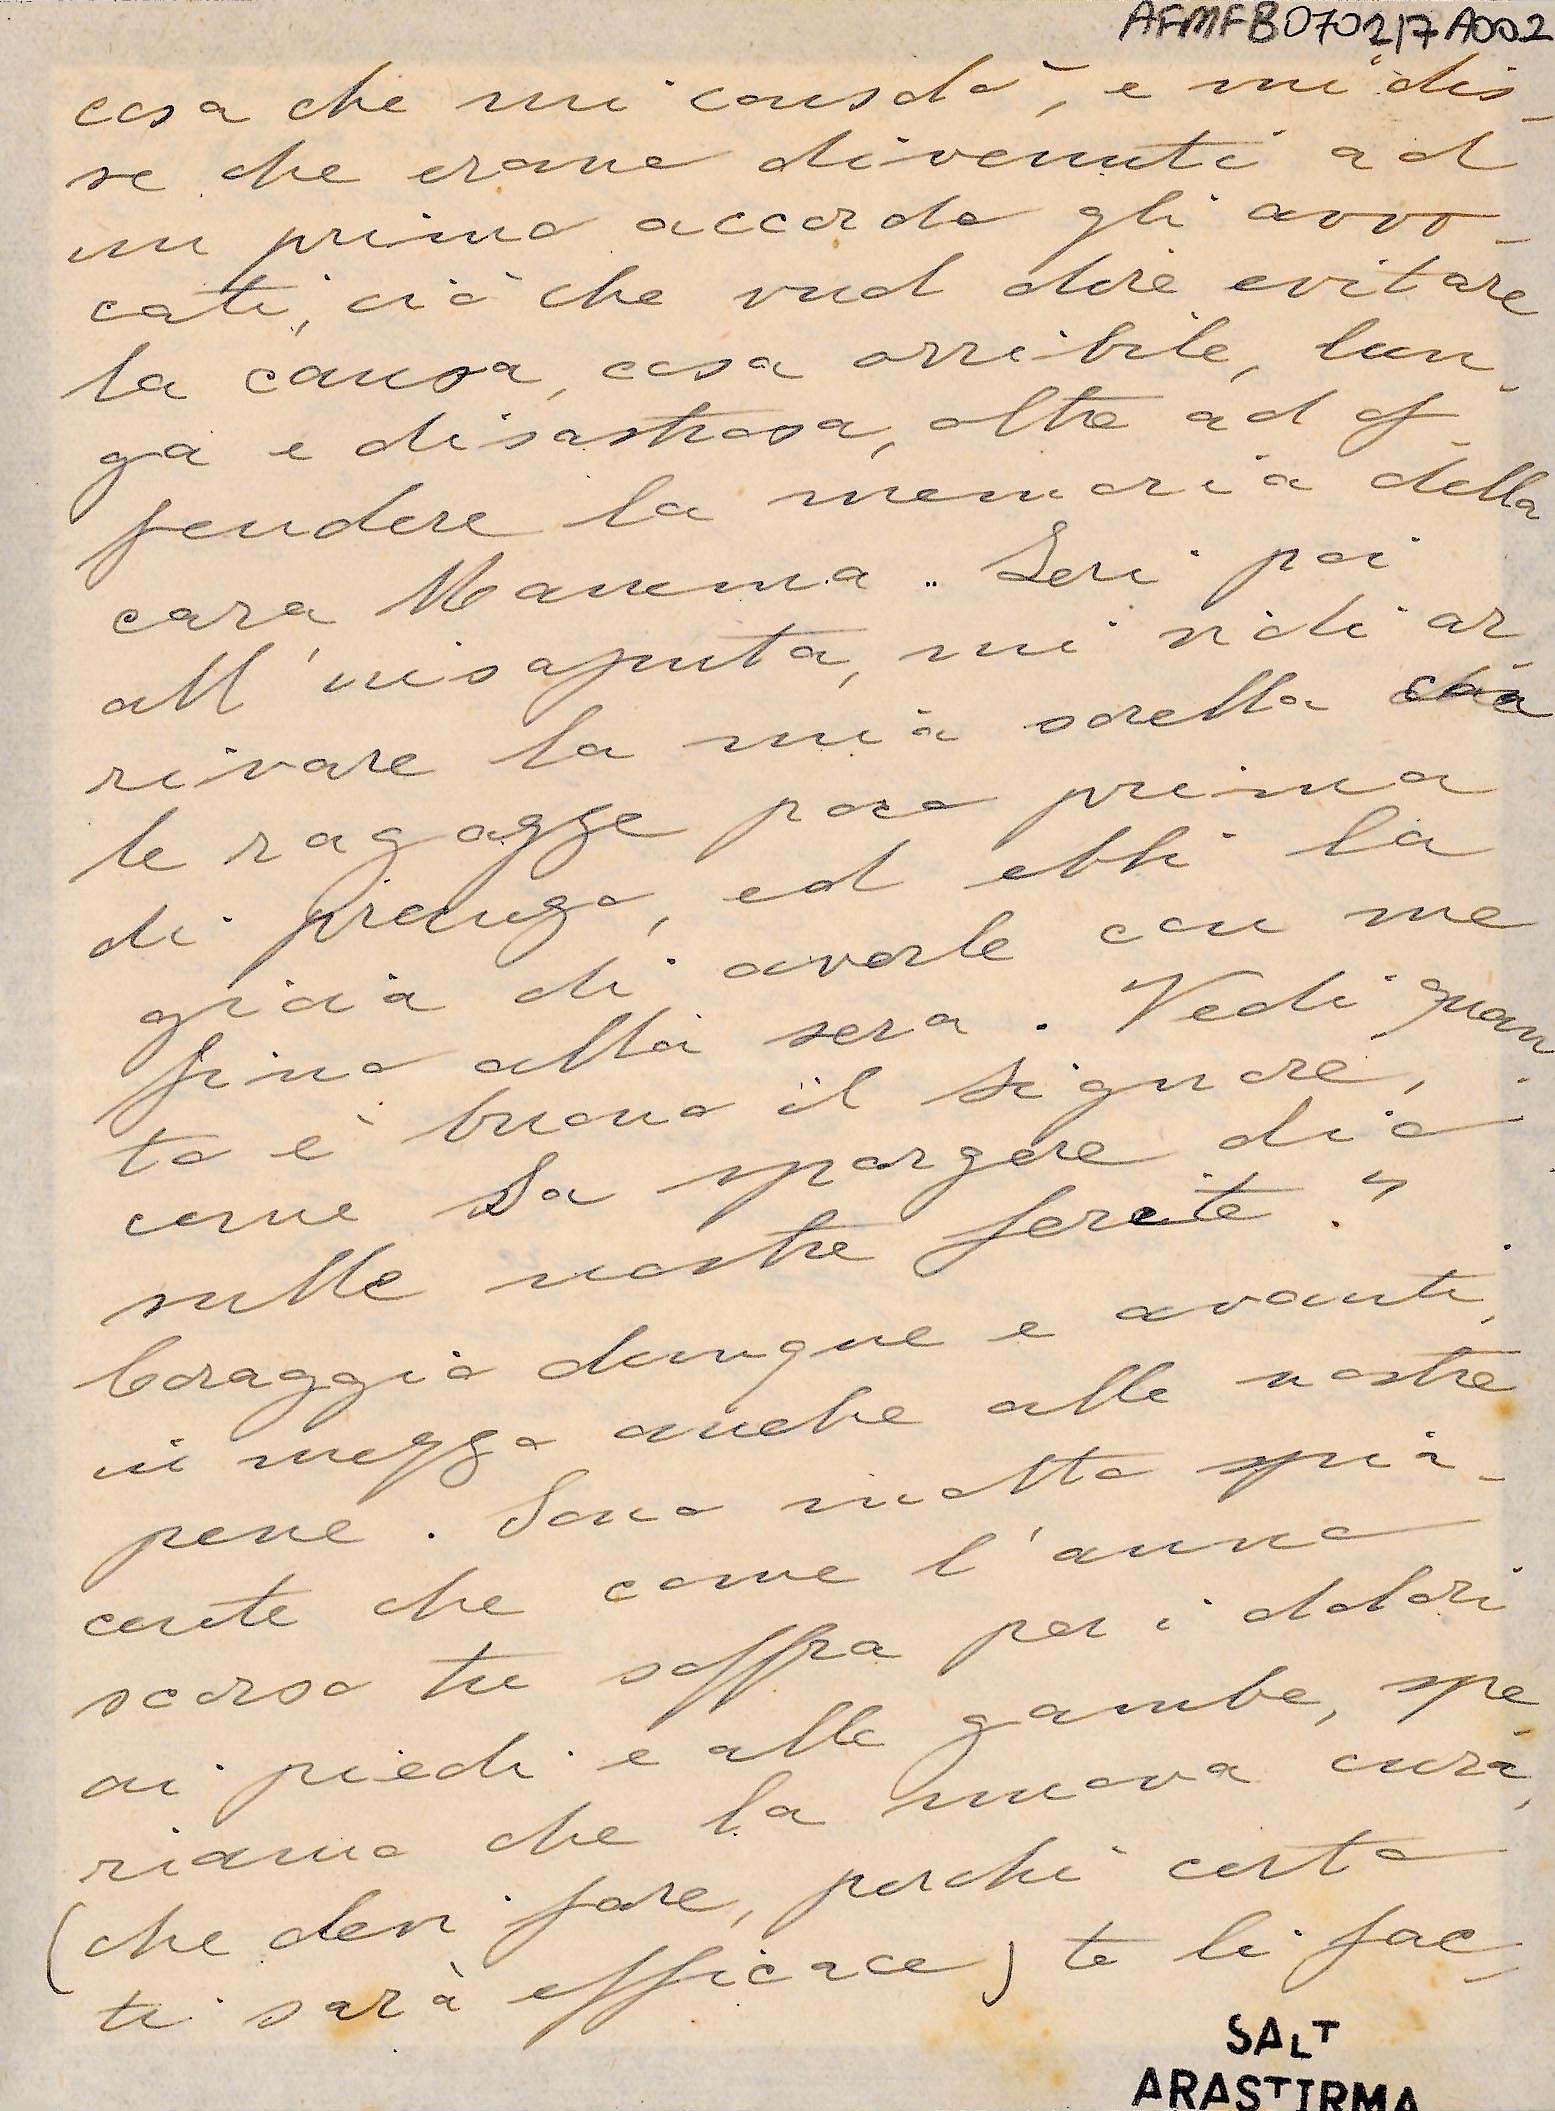 AFMFB0702/7A002
cosa che mi consolò, e mi dis-
se che erano divenuti ad
un primo accordo gli avvo-
cati, ciò che vuol dire evitare
la causa, cosa orribile, lun-
ga e disastrosa, oltre ad of-
fendere la memoria della
cara Mamma. Ieri poi
all'insaputa, mi vidi ar
rivare la mia sorella con
le ragazze poco prima
di pranzo, ed ebbi la
gioia di averle con me
fino alla sera. Vedi quan
to è buono il Signore,
come sa spargere olio
sulle nostre ferite."
Coraggio dunque e avanti,
in mezzo anche alle nostre
pene. Sono molto spia-
cente che come l'anno
scorso tu soffra per i dolori
ai piedi e alle gambe, spe
riamo che la nuova cura,
(che devi fare, perchè certo
ti sarà efficace) te li fac-
SALT
ARASTIRMA